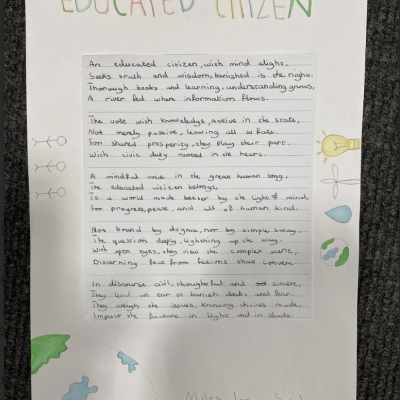 EDUCATED CITIZEN
An educated citizen, with mind alight,
Seeks truth and wisdom, banished is the night.
Thorough books and learning, understanding grows,
A river fed where information flows.
The vote with knowledge, active in the state,
Not merely passive, leaving all to fate.
For shared prosperity, they play their part.
With civic duty rooted in the heart.
A mindful voice in the great human song,
The educated citizen belongs,
To a world made better by its light of mind,
For progress, peace, and all of human kind.
Not bound by dogma, nor by simply sway,
The question deeply, lightning up the way.
With open eyes, they view the complex scene,
Discerning fact from fictions that convene.
In discourse civil, thoughtful and sincere,
They lend an ear to banish doubt and fear.
They weigh the issues, knowing choices made,
Impact the future in light and in shade.